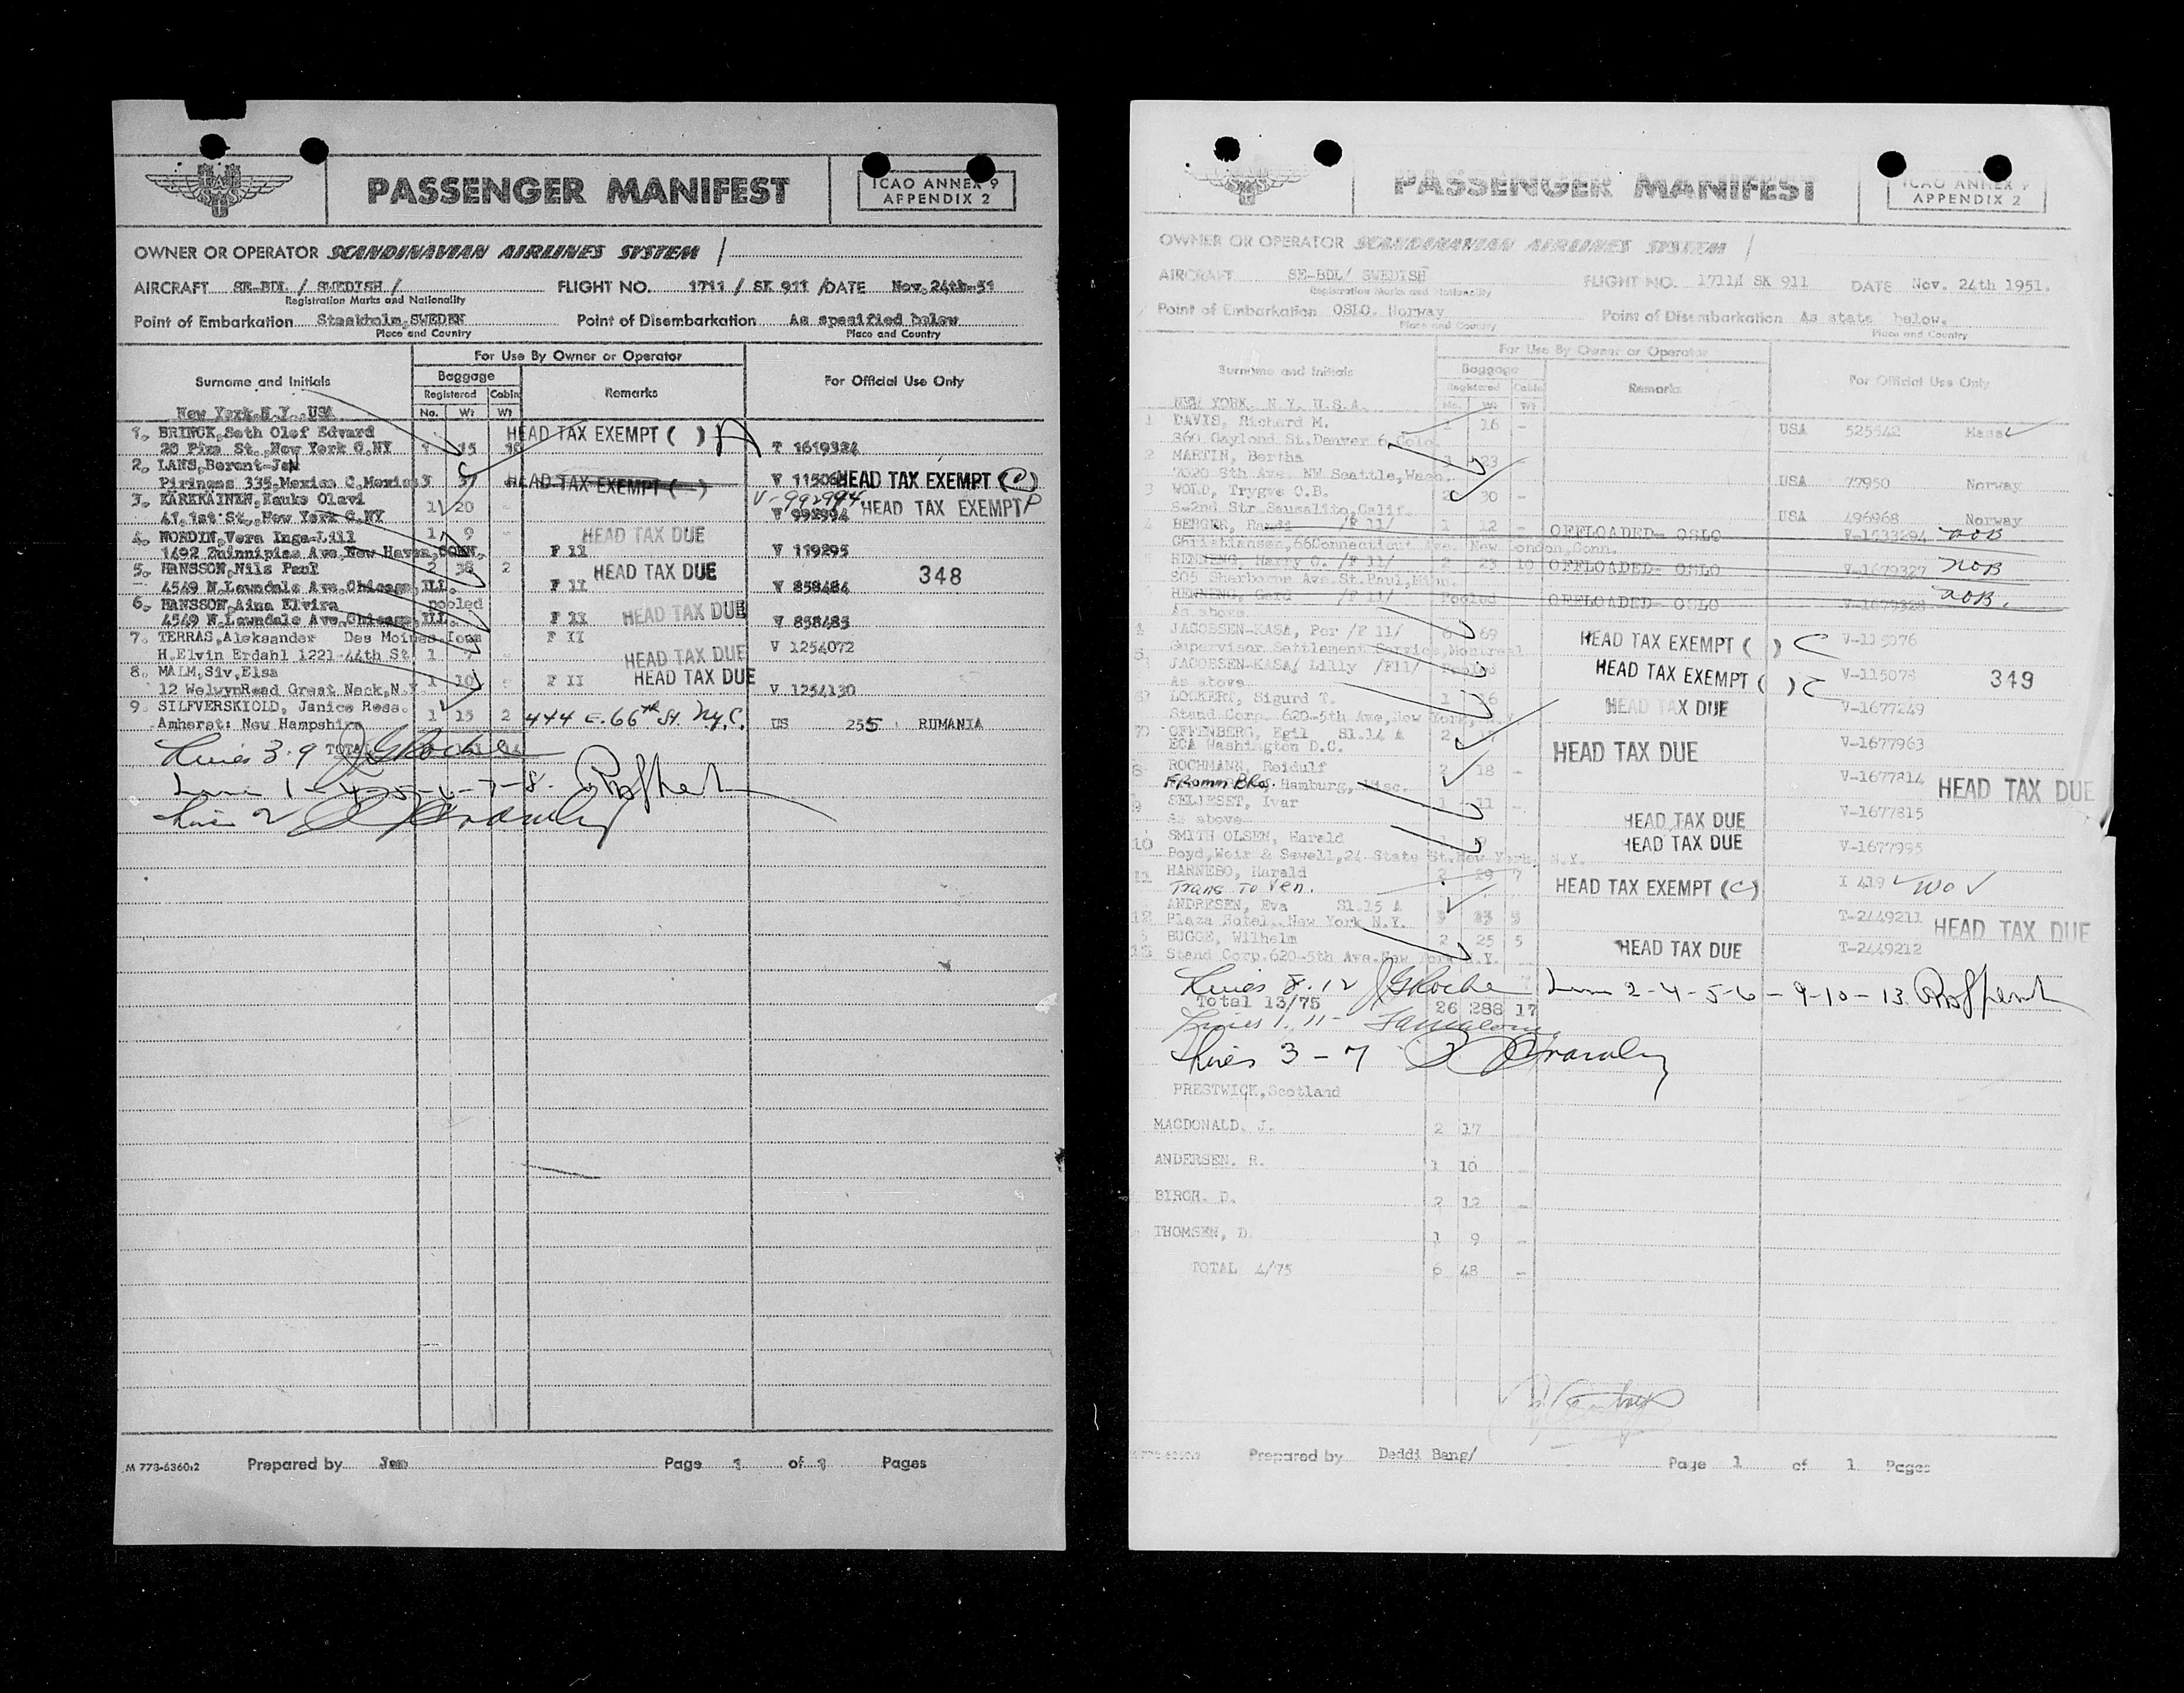 PASSENGER MANIFEST
ICAO ANNEX 9
APPENDIX 2
OWNER OR OPERATOR SCANDINAVIAN AIRLINES SYSTEM /
AIRCRAFT SE-BDL / SWEDISH / FLIGHT NO. 1711 / SK 911 / DATE Nov. 24th-51
Registration Marks and Nationality
Point of Embarkation Stockholm, SWEDEN Point of Disembarkation As specified below
Place and Country Place and Country
For Use By Owner or Operator
Surname and Initials Baggage Remarks For Official Use Only
Registered Cabin
New York N.Y. USA No. Wt Wt
1. BRINCK, Seth Olof Edvard HEAD TAX EXEMPT ( ) A
28 Pine St., New York C.NY 1 15 10 T 1619324
2. LANS, Berent-Jan
Piringos 335, Mexico C, Mexico 3 37 HEAD TAX EXEMPT ( ) HEAD TAX EXEMPT (C)
3. KÄRKKÄINEN, Kauko Olavi V-992994
47, 1st St., New York C.NY 1 20 - V 992994 HEAD TAX EXEMPT P
4. NORDIN, Vera Inga-Lill 1 9 - HEAD TAX DUE
1492 Quinnipiac Ave, New Haven, CONN. F II V 119295
5. HANSSON, Nils Paul 2 38 2 HEAD TAX DUE 348
4549 N. Lawndale Ave, Chicago, ILL. F II V 858484
6. HANSSON, Aina Elvira pooled
4549 N. Lawndale Ave, Chicago, ILL. F II HEAD TAX DUE V 858485
7. TERRAS, Aleksander Des Moines, Iowa F II
H. Elvin Erdahl 1221-44th St 1 7 - HEAD TAX DUE V 1254072
8. MALM, Siv, Elsa 1 10 - F II HEAD TAX DUE
12 Welwyn Road Great Neck, N.Y. V 1254130
9. SILFVERSKIOLD, Janice Ross.
Amherst: New Hampshire 1 15 2 444 E. 66th St. N.Y.C. US 255 RUMANIA
Lines 3-9 TOTAL JGRoche
Lines 1-4-5-6-7-8.
Lines 2
M 773-6360:2 Prepared by Jen Page 1 of 1 Pages
PASSENGER MANIFEST
ICAO ANNEX 9
APPENDIX 2
OWNER OR OPERATOR SCANDINAVIAN AIRLINES SYSTEM /
AIRCRAFT SE-BDL/ SWEDISH FLIGHT NO. 1711/ SK 911 DATE Nov. 24th 1951.
Registration Marks and Nationality
Point of Embarkation OSLO. Norway Point of Disembarkation As state below.
Place and Country Place and Country
For Use By Owner or Operator
Surname and Initials Baggage Remarks For Official Use Only
Registered Cabin
NEW YORK, N.Y. U.S.A. No. Wt Wt
1 DAVIS, Richard M. 1 16 - USA 525542 Mass
360 Gaylond St. Denver 6 Colo
2 MARTIN, Bertha 3 23
7020 8th Ave. NW Seattle, Wash. USA 77950 Norway
3 WOLD, Trygve O.B. 2 30 -
8-2nd Str. Sausalito, Calif. USA 496968 Norway
4 BERGER, Randi /F 11/ 1 12 - OFFLOADED- OSLO V-1533294 NOB
Christiansen, 66 Connecticut Ave. New London, Conn.
HENNENG, Harry O. /F 11/ 2 23 10 OFFLOADED- OSLO V-1679327 NOB
805 Sherborne Ave. St. Paul, Minn.
HENNENG, Gerd /F 11/ Pooled OFFLOADED- OSLO V-1679328 NOB.
As above
4 JACOBSEN-KASA, Per /F 11/ 6 69 HEAD TAX EXEMPT ( ) C V-115076
Supervisor Settlement Service, Montreal
5 JACOBSEN-KASA/ Lilly /F11/ Pooled HEAD TAX EXEMPT ( ) C V-115075 349
As above
6 LOCKERT, Sigurd T. 1 16 HEAD TAX DUE V-1677249
Stand Corp. 620-5th Ave, New York, N.Y.
7 OFFENBERG, Egil Sl.14 A 2 17
ECA Washington D.C. HEAD TAX DUE V-1677963
8 ROCHMANN, Reidulf 2 18 - V-1677814 HEAD TAX DUE
Fromm Bro. Hamburg, Wisc.
9 SELJESET, Ivar 1 11 - HEAD TAX DUE V-1677815
As above
10 SMITH OLSEN, Harald 1 9 HEAD TAX DUE V-1677995
Boyd, Weir & Sewell, 24 State St. New York, N.Y.
11 HARNEBO, Harald 2 29 7 HEAD TAX EXEMPT (C) I 419 WO
Trans To Ven.
ANDRESEN, Eva Sl.15 A
12 Plaza Hotel, New York N.Y. 3 23 5 T-2449211 HEAD TAX DUE
BUGGE, Wilhelm 2 25 5
13 Stand Corp. 620-5th Ave. New York N.Y. HEAD TAX DUE T-2449212
Lines 8-12 JGRoche Lines 2-4-5-6-9-10-13
Total 13/75 26 288 17
Lines 1. 11-
Lines 3-7
PRESTWICK, Scotland
MACDONALD. J. 2 17
ANDERSEN. R. 1 10 -
BIRCH. D. 2 12 -
THOMSEN, D. 1 9 -
TOTAL 4/75 6 48 -
Prepared by Deddi Bang/ Page 1 of 1 Pages